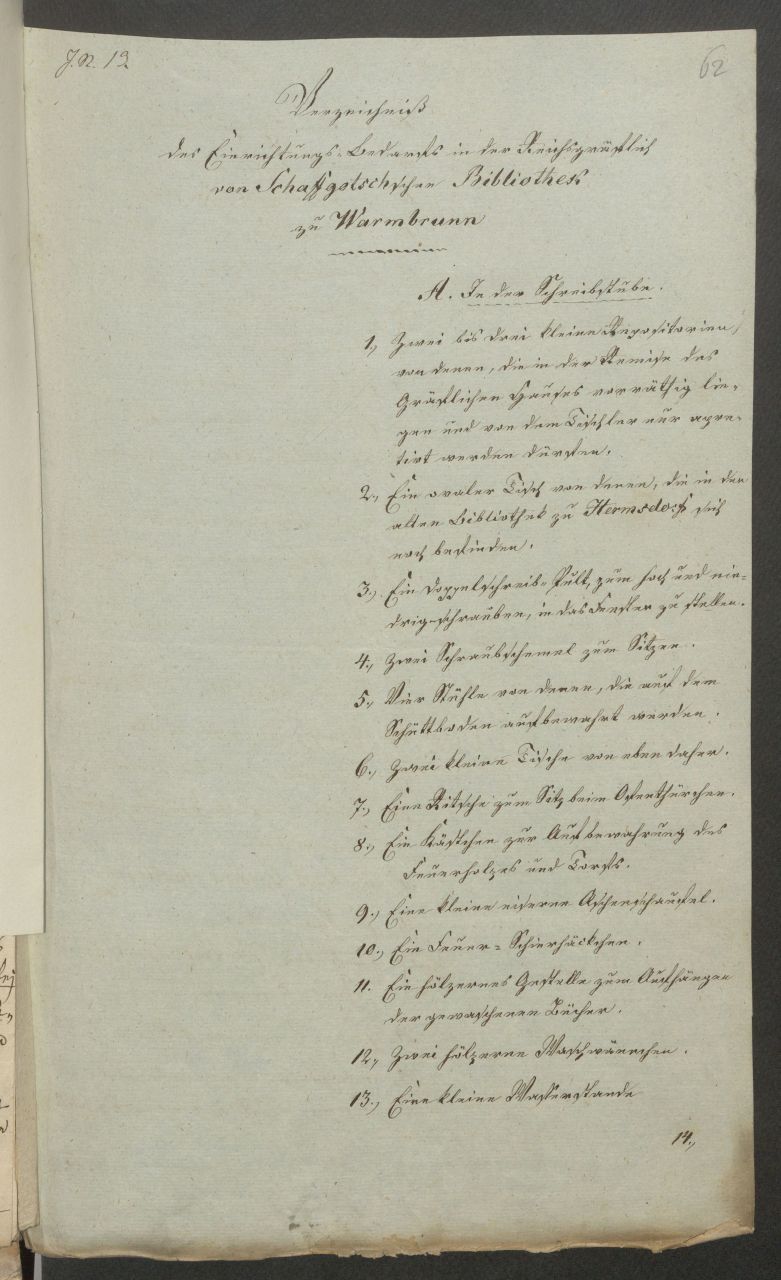 J. N. 12
62
Verzeichniß
des Einrichtungs-Bedarfs in der Reichsgräflich
von Schaffgotschschen Bibliothek
zu Warmbrunn
A. In der Schreibstube.
1., Zwei bis drei kleine Repositorien,
von denen, die in der Remise des
Gräflichen Hauses vorräthig lie-
gen und von dem Tischler nur apre-
tirt werden dürfen.
2., Ein ovaler Tisch von denen, die in der
alten Bibliothek zu Hermsdorf sich
noch befinden.
3., Ein Doppelschreib-Pult, zum hoch und nie-
drig-schrauben, in das Fenster zu stellen.
4., Zwei Schraubschemel zum Sitzen.
5., Vier Stühle von denen, die auf dem
Schüttboden aufbewahrt werden.
6., Zwei kleine Tische von eben daher.
7., Eine Ritsche zum Sitz beim Ofenthürchen.
8., Ein Kästchen zur Aufbewahrung des
Feuerholzes und Torfs.
9., Eine kleine eiserne Aschenschaufel.
10., Ein Feuer-Schierhäckchen.
11. Ein hölzernes Gestelle zum Aufhängen
der gewaschenen Bücher.
12., Zwei hölzerne Waschwännchen.
13., Eine kleine Wasserstande
14.,